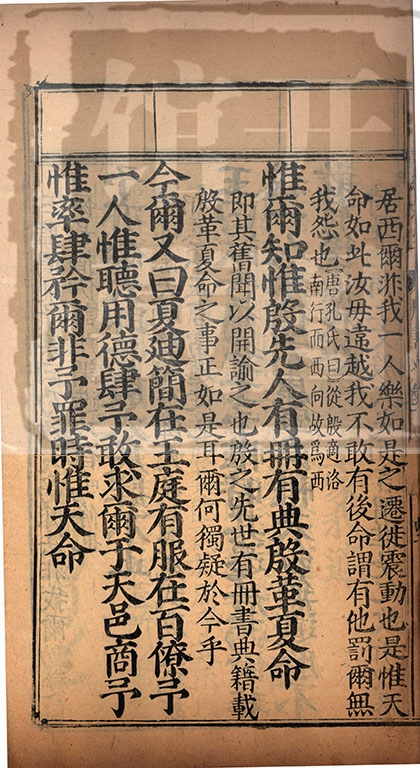 居西爾非我一人樂如是之遷徙震動也是惟天
命如此汝毋遠越我不敢有後命謂有他罰爾無
我怨也
唐孔氏曰從殷適洛
南行而西向故爲西
惟爾知惟殷先人有冊有典殷革夏命
即其舊聞以開諭之也殷之先世有冊書典籍載
殷革夏命之事正如是耳爾何獨疑於今乎
今爾又曰夏迪簡在王庭有服在百僚予
一人惟聽用德肆予敢求爾于天邑商予
惟率肆矜爾非予罪時惟天命